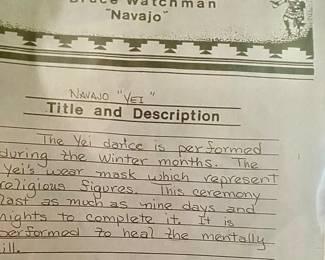 Bruce Watchman
"Navajo"
NAVAJO "YEI"
Title and Description
The Yei dance is performed
during the winter months. The
Yei's wear mask which represent
religious figures. This ceremony
last as much as nine days and
nights to complete it. It is
performed to heal the mentally
ill.